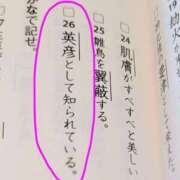 24 肌膚がすべすべと美しい
25 雛鳥を翼蔽する。
26 英彦として知られている。
がなで記せ。